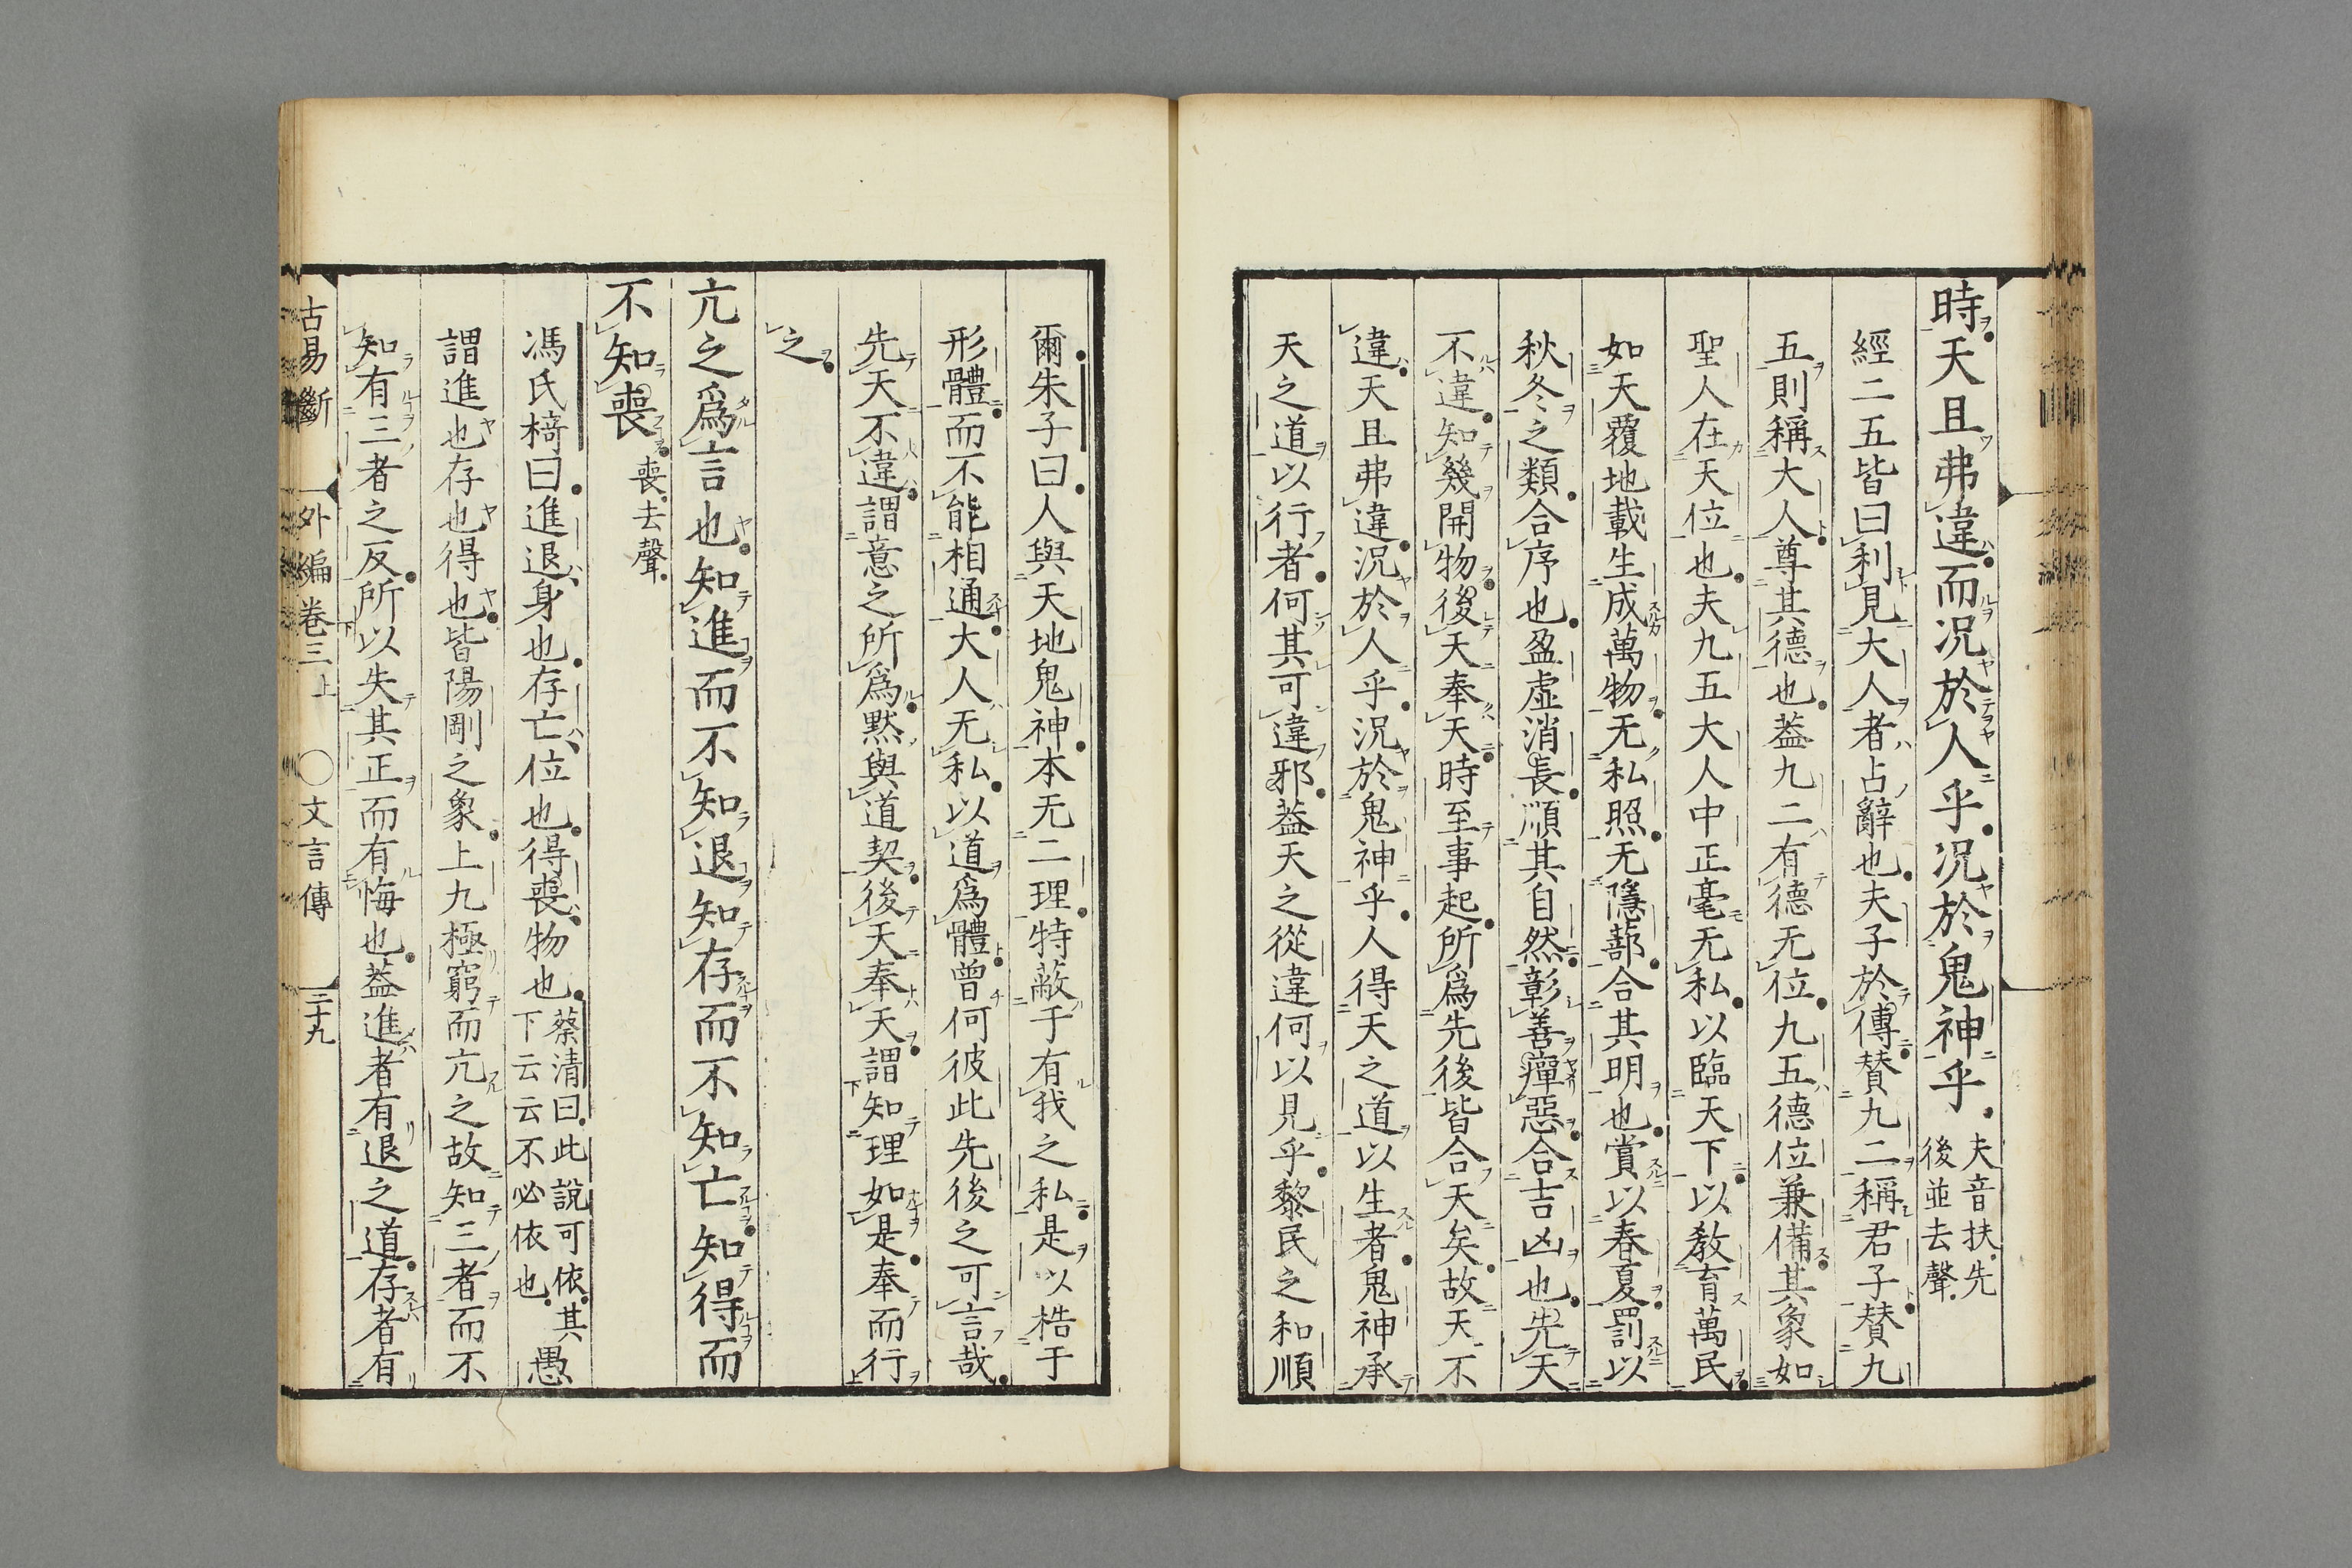 時天且弗違而況於人乎況於鬼神乎夫音扶先後並去聲
經二五皆曰利見大人者占辭也夫子於傳賛九二稱君子賛九
五則稱大人尊其德也葢九二有德无位九五德位兼備其象如
聖人在天位也夫九五大人中正毫无私以臨天下以敎育萬民
如天覆地載生成萬物无私照无隱蔀合其明也賞以春夏罰以
秋冬之類合序也盈虛消長順其自然彰善癉惡合吉凶也先天
不違知幾開物後天奉天時至事起所爲先後皆合天矣故天不
違天且弗違況於人乎況於鬼神乎人得天之道以生者鬼神承
天之道以行者何其可違邪葢天之從違何以見乎黎民之和順
爾朱子曰人與天地鬼神本无二理特蔽于有我之私是以梏于
形體而不能相通大人无私以道爲體曾何彼此先後之可言哉
先天不違謂意之所爲默與道契後天奉天謂知理如是奉而行
之
亢之爲言也知進而不知退知存而不知亡知得而
不知喪喪去聲
馮氏椅曰進退身也存亡位也得喪物也蔡清曰此說可依其下云云不必依也愚
謂進也存也得也皆陽剛之象上九極窮而亢之故知三者而不
知有三者之反所以失其正而有悔也葢進者有退之道存者有
古易斷 外編卷三上 ○文言傳 二十九